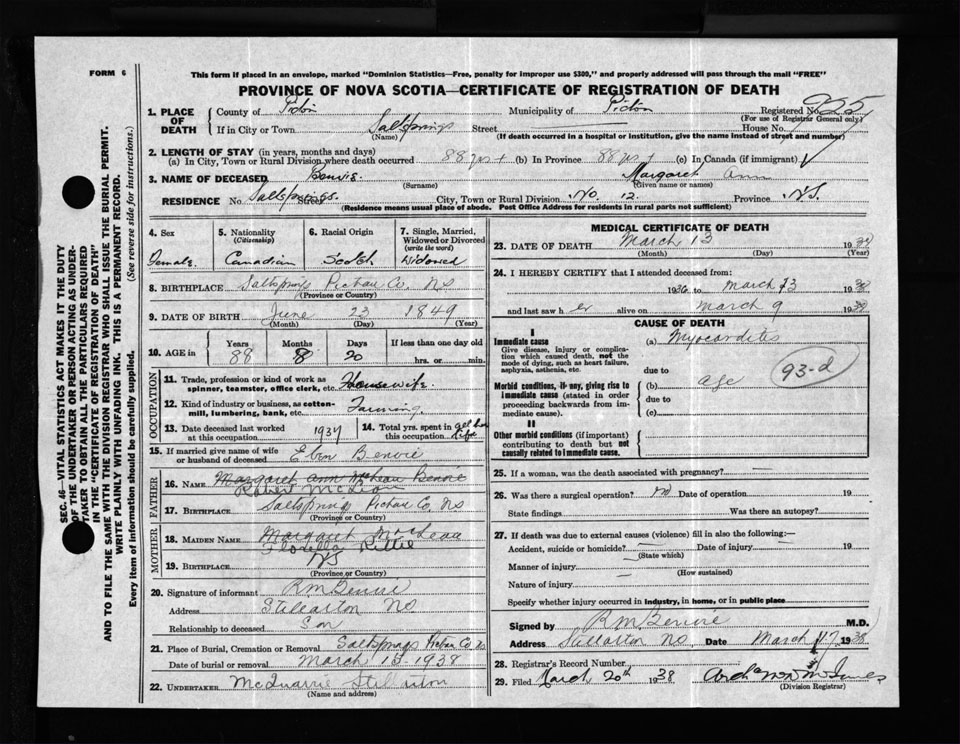 FORM 6
This form if placed in an envelope, marked "Dominion Statistics—Free, penalty for improper use $300," and properly addressed will pass through the mail "FREE"
PROVINCE OF NOVA SCOTIA—CERTIFICATE OF REGISTRATION OF DEATH
SEC. 46—VITAL STATISTICS ACT MAKES IT THE DUTY
OF THE UNDERTAKER OR PERSON ACTING AS UNDER-
TAKER TO OBTAIN ALL THE PARTICULARS REQUIRED
IN THE "CERTIFICATE OF REGISTRATION OF DEATH"
AND TO FILE THE SAME WITH THE DIVISION REGISTRAR WHO SHALL ISSUE THE BURIAL PERMIT.
WRITE PLAINLY WITH UNFADING INK. THIS IS A PERMANENT RECORD.
Every item of information should be carefully supplied. (See reverse side for instructions.)
1. PLACE OF DEATH County of Pictou Municipality of Pictou Registered No. 925
(For use of Registrar General only)
If in City or Town Saltsprings Street House No.
(Name) (If death occurred in a hospital or institution, give the name instead of street and number)
2. LENGTH OF STAY (in years, months and days)
(a) In City, Town or Rural Division where death occurred 88 yrs + (b) In Province 88 yrs + (c) In Canada (if immigrant)
3. NAME OF DECEASED Benvie. Margaret Ann
(Surname) (Given name or names)
RESIDENCE No. Saltsprings Street City, Town or Rural Division No. 12. Province N.S.
(Residence means usual place of abode. Post Office Address for residents in rural parts not sufficient)
4. Sex Female.
5. Nationality (Citizenship) Canadian
6. Racial Origin Scotch
7. Single, Married, Widowed or Divorced (write the word) Widowed
8. BIRTHPLACE Saltsprings Pictou Co. NS
(Province or Country)
9. DATE OF BIRTH June 23 1849
(Month) (Day) (Year)
10. AGE in Years 88 Months 8 Days 20 If less than one day old hrs. or min.
OCCUPATION
11. Trade, profession or kind of work as spinner, teamster, office clerk, etc. Housewife.
12. Kind of industry or business, as cotton-mill, lumbering, bank, etc. Farming.
13. Date deceased last worked at this occupation 1937
14. Total yrs. spent in this occupation all her life
15. If married give name of wife or husband of deceased Eben Benvie
FATHER
16. NAME Margaret Ann McLean Benvie
Robert McLean
17. BIRTHPLACE Saltsprings Pictou Co. NS
(Province or Country)
MOTHER
18. MAIDEN NAME Margaret McLean
19. BIRTHPLACE NS
(Province or Country)
20. Signature of informant R M Benvie
Address Stellarton NS
Relationship to deceased Son
21. Place of Burial, Cremation or Removal Saltsprings Pictou Co NS
Date of burial or removal March 15 - 1938
22. UNDERTAKER McQuarrie Stellarton
(Name and address)
MEDICAL CERTIFICATE OF DEATH
23. DATE OF DEATH March 13 1938
(Month) (Day) (Year)
24. I HEREBY CERTIFY that I attended deceased from:
1936 to March 13 1938
and last saw her alive on March 9 1938
CAUSE OF DEATH
I
Immediate cause (a) Myocarditis
Give disease, injury or complication which caused death, not the mode of dying, such as heart failure, asphyxia, asthenia, etc.
due to
Morbid conditions, if any, giving rise to immediate cause (stated in order proceeding backwards from immediate cause).
(b) age
93-d
due to
(c)
II
Other morbid conditions (if important) contributing to death but not causally related to immediate cause.
25. If a woman, was the death associated with pregnancy? —
26. Was there a surgical operation? no Date of operation 19
State findings Was there an autopsy?
27. If death was due to external causes (violence) fill in also the following:—
Accident, suicide or homicide? Date of injury 19
(State which)
Manner of injury
(How sustained)
Nature of injury
Specify whether injury occurred in industry, in home, or in public place
Signed by R M Benvie M.D.
Address Stellarton NS Date March 17 1938
28. Registrar's Record Number
29. Filed March 20th 1938
(Division Registrar)